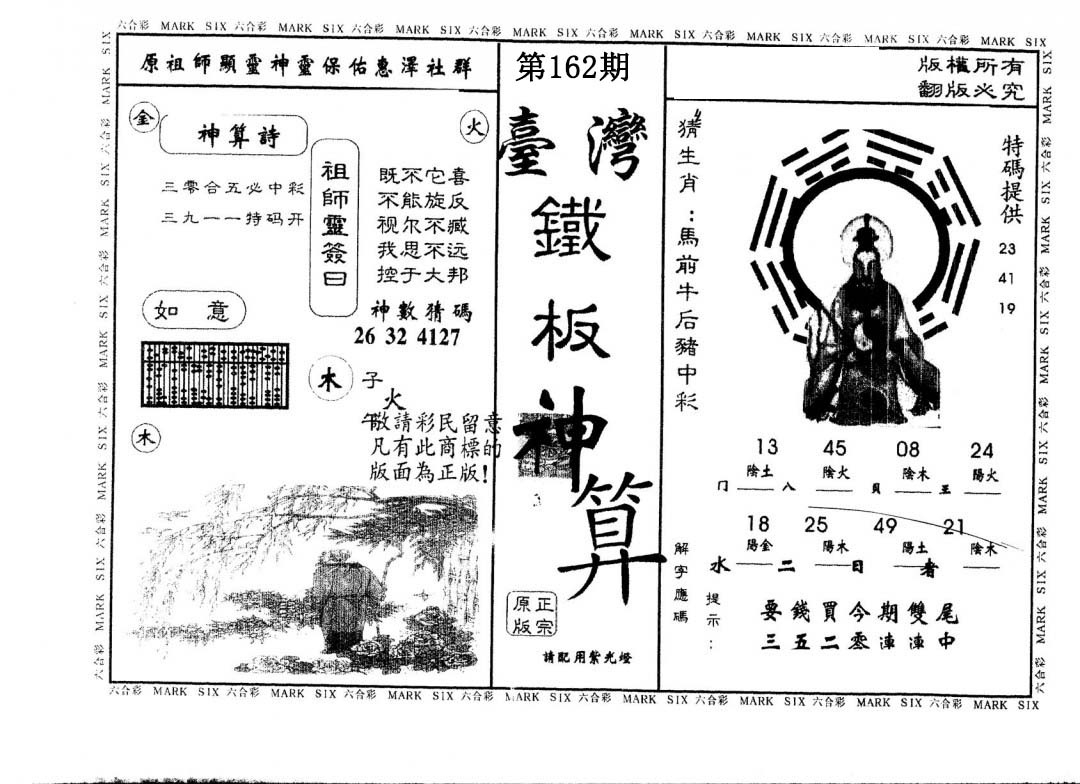 六合彩 MARK SIX 六合彩 MARK SIX 六合彩 MARK SIX 六合彩 MARK SIX 六合彩 MARK SIX 六合彩 MARK SIX 六合彩 MARK SIX 六合彩 MARK SIX
原祖師顯靈神靈保佑惠澤社群
第162期
版權所有
翻版必究
金
神算詩
火
三零合五必中彩
三九一一特码开
祖師靈簽曰
既不它喜
不能旋反
视尔不臧
我思不远
控于大邦
神數猜碼
26 32 4127
如意
木
子
火
午敬請彩民留意
凡有此商標的
版面為正版!
木
臺灣
鐵板神算
正宗
原版
請配用紫光燈
猜生肖:馬前牛后豬中彩
特碼提供
23
41
19
13 45 08 24
陰土 陰火 陰木 陽火
冂 八 貝 王
18 25 49 21
陽金 陽木 陽土 陰木
水 二 日 者
解字應碼
提示:
要錢買今期雙尾
三五二零連連中
六合彩 MARK SIX 六合彩 MARK SIX 六合彩 MARK SIX 六合彩 MARK SIX 六合彩 MARK SIX 六合彩 MARK SIX 六合彩 MARK SIX 六合彩 MARK SIX